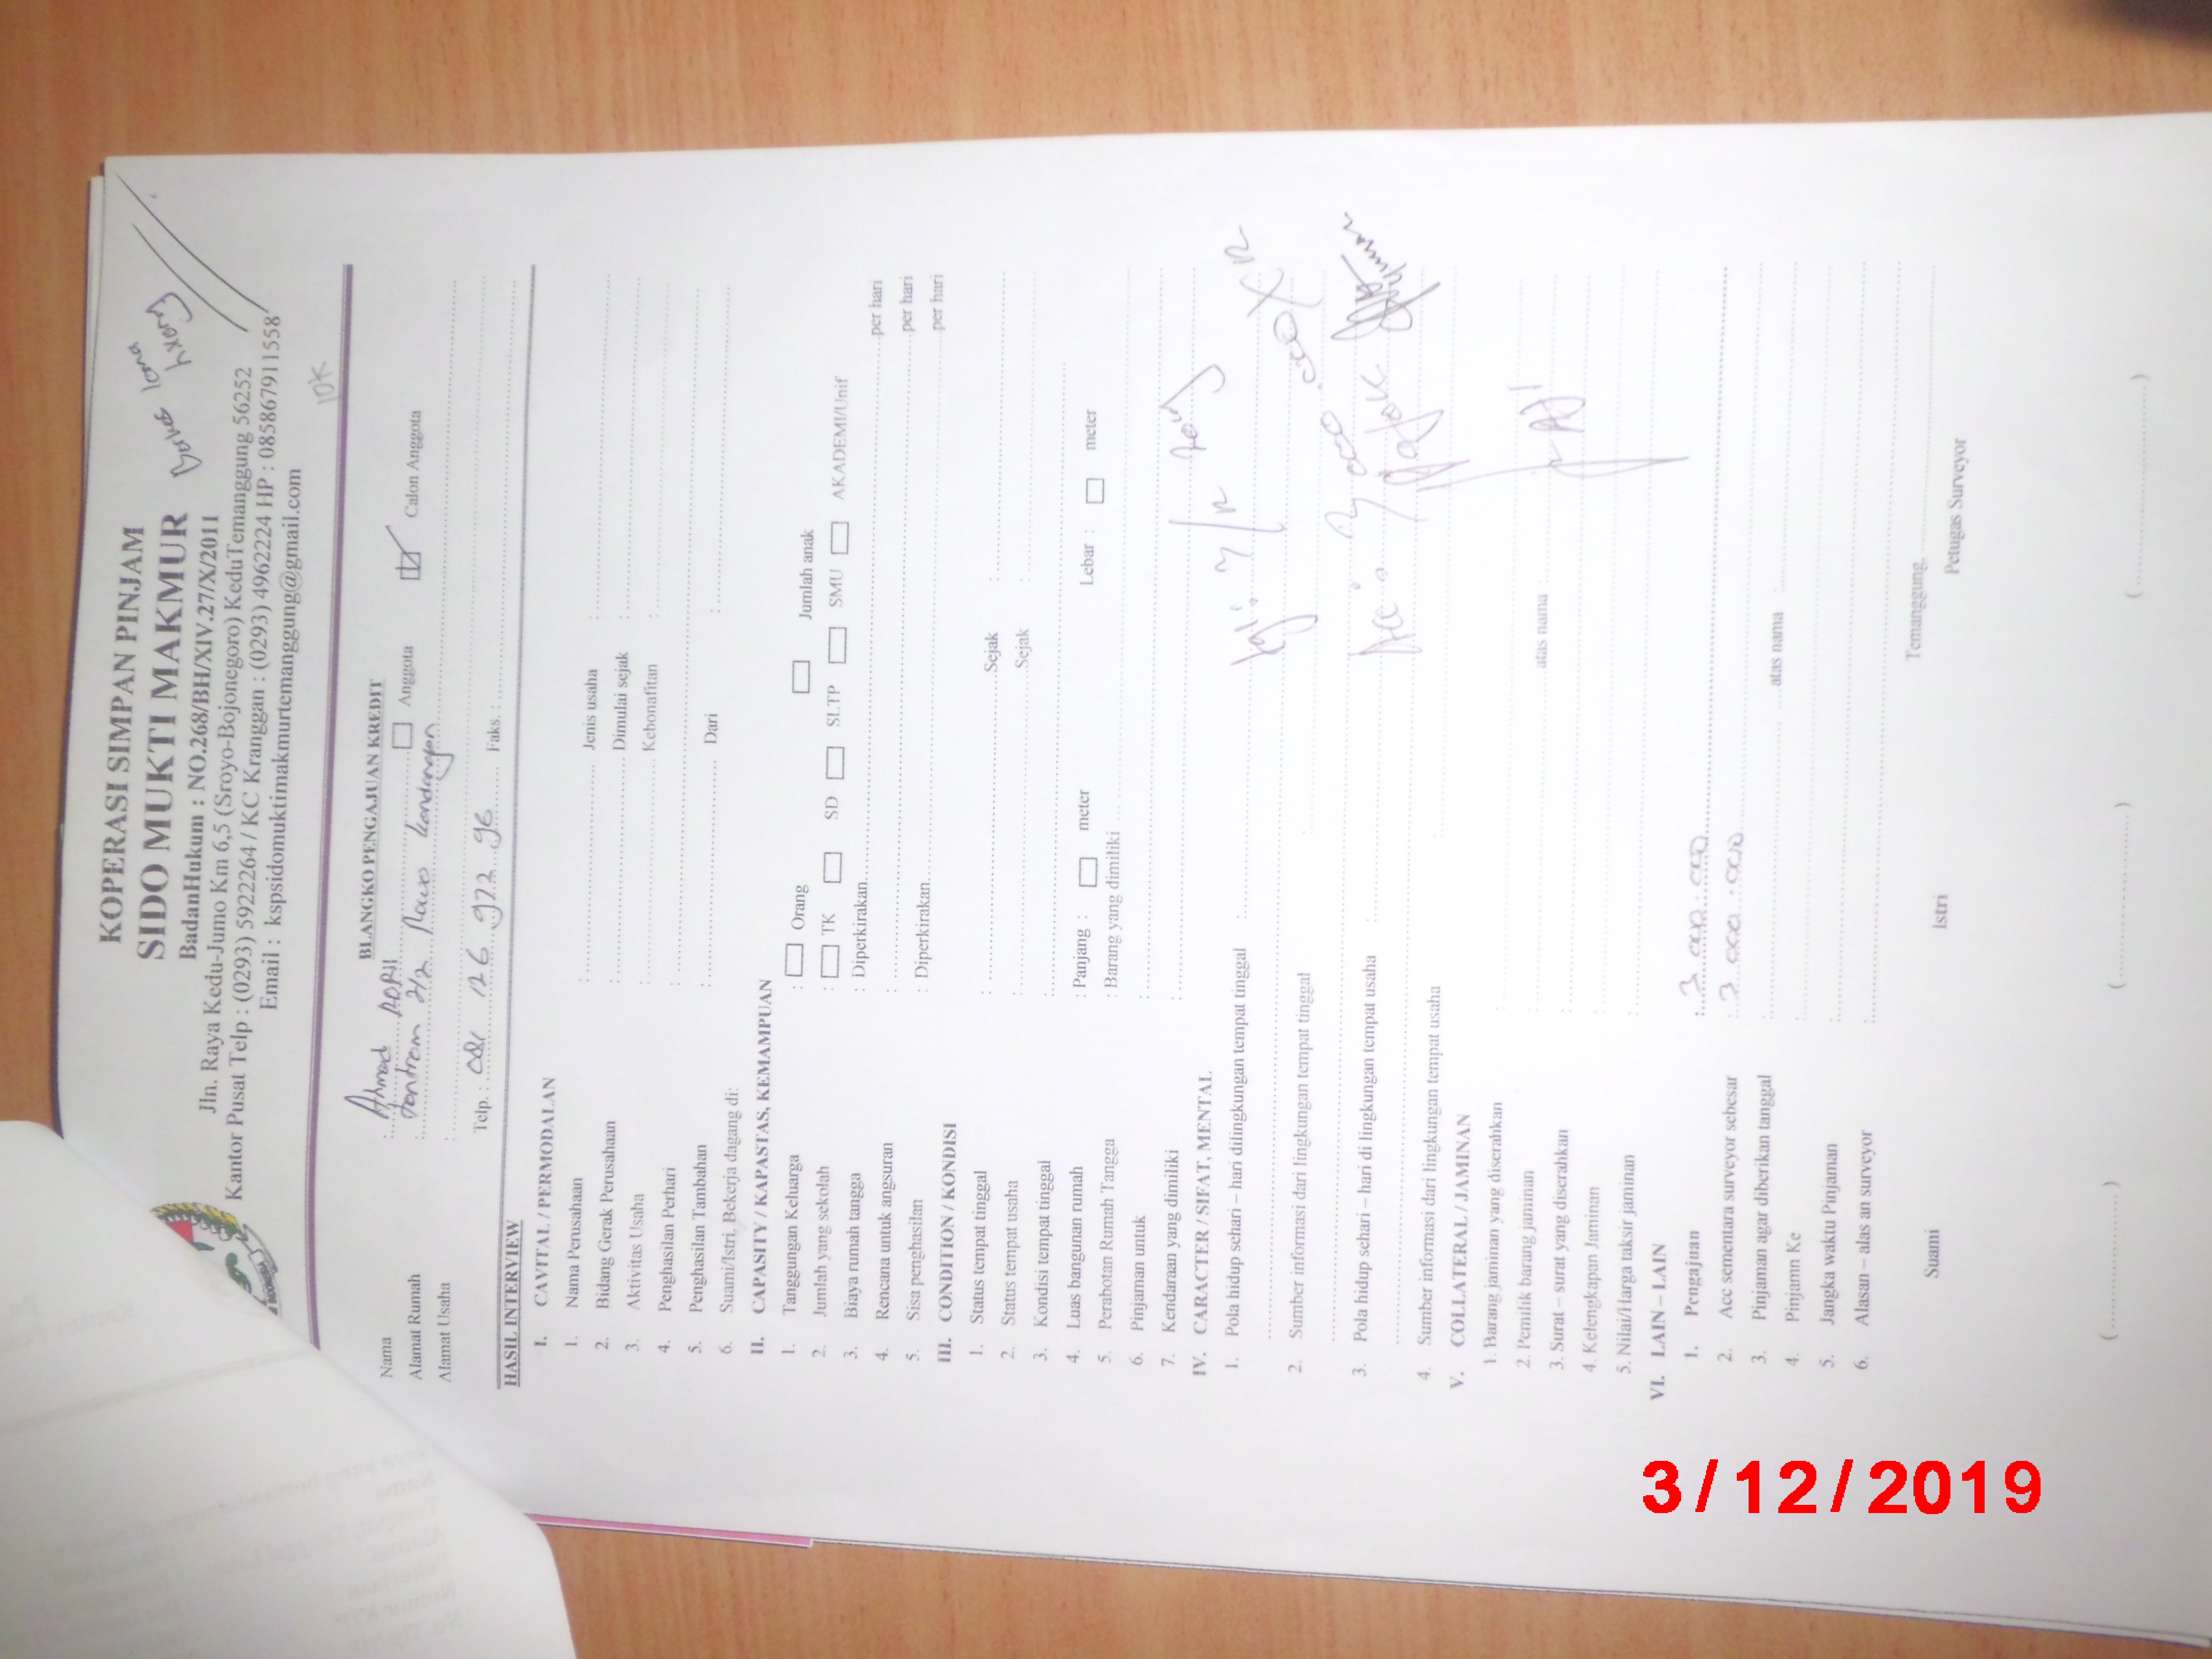 KOPERASI SIMPAN PINJAM
SIDO MUKTI MAKMUR
BadanHukum : NO.268/BH/XIV.27/X/2011
Jln. Raya Kedu-Jumo Km 6,5 (Sroyo-Bojonegoro) KeduTemanggung 56252
Kantor Pusat Telp : (0293) 5922264 / KC Kranggan : (0293) 4962224 HP : 085867911558
Email : kspsidomuktimakmurtemanggung@gmail.com
10K
BLANGKO PENGAJUAN KREDIT
Nama : Ahmad
Alamat Rumah : 2/2 Anggota Calon Anggota
Alamat Usaha :
Telp. : 081 126 972 96 Faks. :
HASIL INTERVIEW
I. CAVITAL / PERMODALAN
1. Nama Perusahaan : Jenis usaha :
2. Bidang Gerak Perusahaan : Dimulai sejak :
3. Aktivitas Usaha : Kebonafitan :
4. Penghasilan Perhari :
5. Penghasilan Tambahan : Dari :
6. Suami/Istri, Bekerja dagang di:
II. CAPASITY / KAPASTAS, KEMAMPUAN
1. Tanggungan Keluarga : Orang Jumlah anak
2. Jumlah yang sekolah : TK SD SLTP SMU AKADEMI/Unif
3. Biaya rumah tangga : Diperkirakan per hari
4. Rencana untuk angsuran : per hari
5. Sisa penghasilan : Diperkirakan per hari
III. CONDITION / KONDISI
1. Status tempat tinggal : Sejak :
2. Status tempat usaha : Sejak :
3. Kondisi tempat tinggal :
4. Luas bangunan rumah : Panjang : meter Lebar : meter
5. Perabotan Rumah Tangga : Barang yang dimiliki
6. Pinjaman untuk :
7. Kendaraan yang dimiliki :
IV. CARACTER / SIFAT, MENTAL
1. Pola hidup sehari – hari dilingkungan tempat tinggal :
2. Sumber informasi dari lingkungan tempat tinggal
3. Pola hidup sehari – hari di lingkungan tempat usaha
Acc :
4. Sumber informasi dari lingkungan tempat usaha
V. COLLATERAL / JAMINAN
1. Barang jaminan yang diserahkan
2. Pemilik barang jaminan : atas nama
3. Surat – surat yang diserahkan
4. Kelengkapan Jaminan
5. Nilai/Harga taksir jaminan :
VI. LAIN – LAIN
1. Pengajuan : 3.000.000
2. Acc sementara surveyor sebesar : 3.000.000
3. Pinjaman agar diberikan tanggal : atas nama :
4. Pinjamn Ke :
5. Jangka waktu Pinjaman :
6. Alasan – alas an surveyor :
Temanggung,
Suami Istri Petugas Surveyor
(..............) (..............) (..............)
3/12/2019